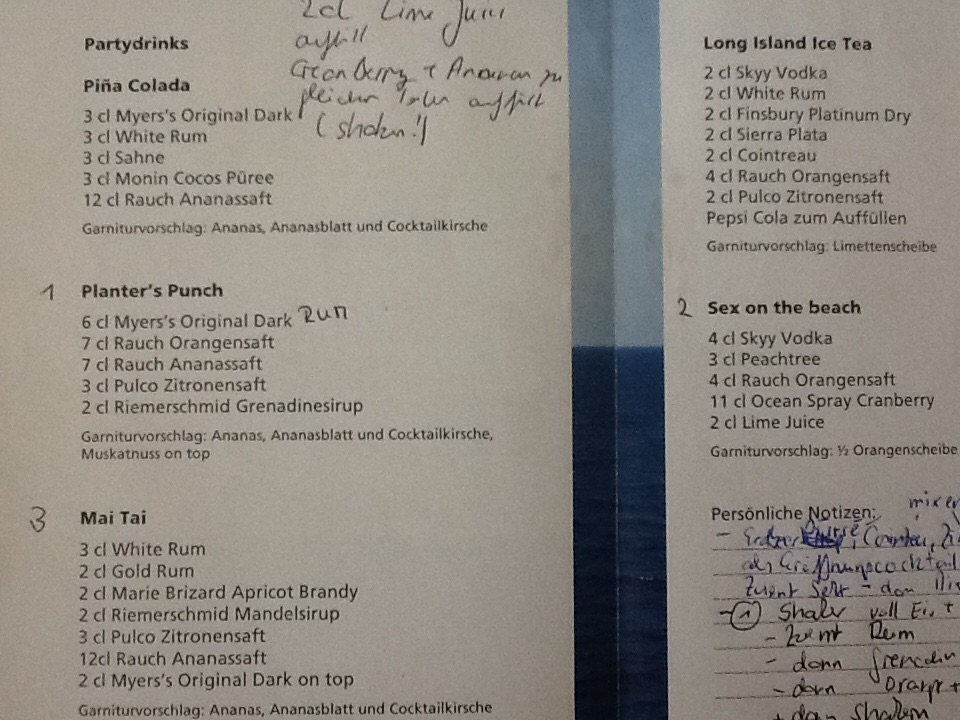 2cl Lime Juice
auffüll
Cranberry + Ananas zu
gleichen Teilen auffüll
(shaken!)
Partydrinks
Piña Colada
3 cl Myers's Original Dark
3 cl White Rum
3 cl Sahne
3 cl Monin Cocos Püree
12 cl Rauch Ananassaft
Garniturvorschlag: Ananas, Ananasblatt und Cocktailkirsche
1 Planter's Punch
6 cl Myers's Original Dark Rum
7 cl Rauch Orangensaft
7 cl Rauch Ananassaft
3 cl Pulco Zitronensaft
2 cl Riemerschmid Grenadinesirup
Garniturvorschlag: Ananas, Ananasblatt und Cocktailkirsche,
Muskatnuss on top
3 Mai Tai
3 cl White Rum
2 cl Gold Rum
2 cl Marie Brizard Apricot Brandy
2 cl Riemerschmid Mandelsirup
3 cl Pulco Zitronensaft
12cl Rauch Ananassaft
2 cl Myers's Original Dark on top
Garniturvorschlag: Ananas, Ananasblatt und Cocktailkirsche
Long Island Ice Tea
2 cl Skyy Vodka
2 cl White Rum
2 cl Finsbury Platinum Dry
2 cl Sierra Plata
2 cl Cointreau
4 cl Rauch Orangensaft
2 cl Pulco Zitronensaft
Pepsi Cola zum Auffüllen
Garniturvorschlag: Limettenscheibe
2 Sex on the beach
4 cl Skyy Vodka
3 cl Peachtree
4 cl Rauch Orangensaft
11 cl Ocean Spray Cranberry
2 cl Lime Juice
Garniturvorschlag: ½ Orangenscheibe
Persönliche Notizen: mixen
- Cointreau,
als Eröffnungscocktail
zuerst Sekt - dann
- 1 Shaker voll Eis +
- zuerst Rum
- dann Grenadin
- dann Orange +
+ dann shaken